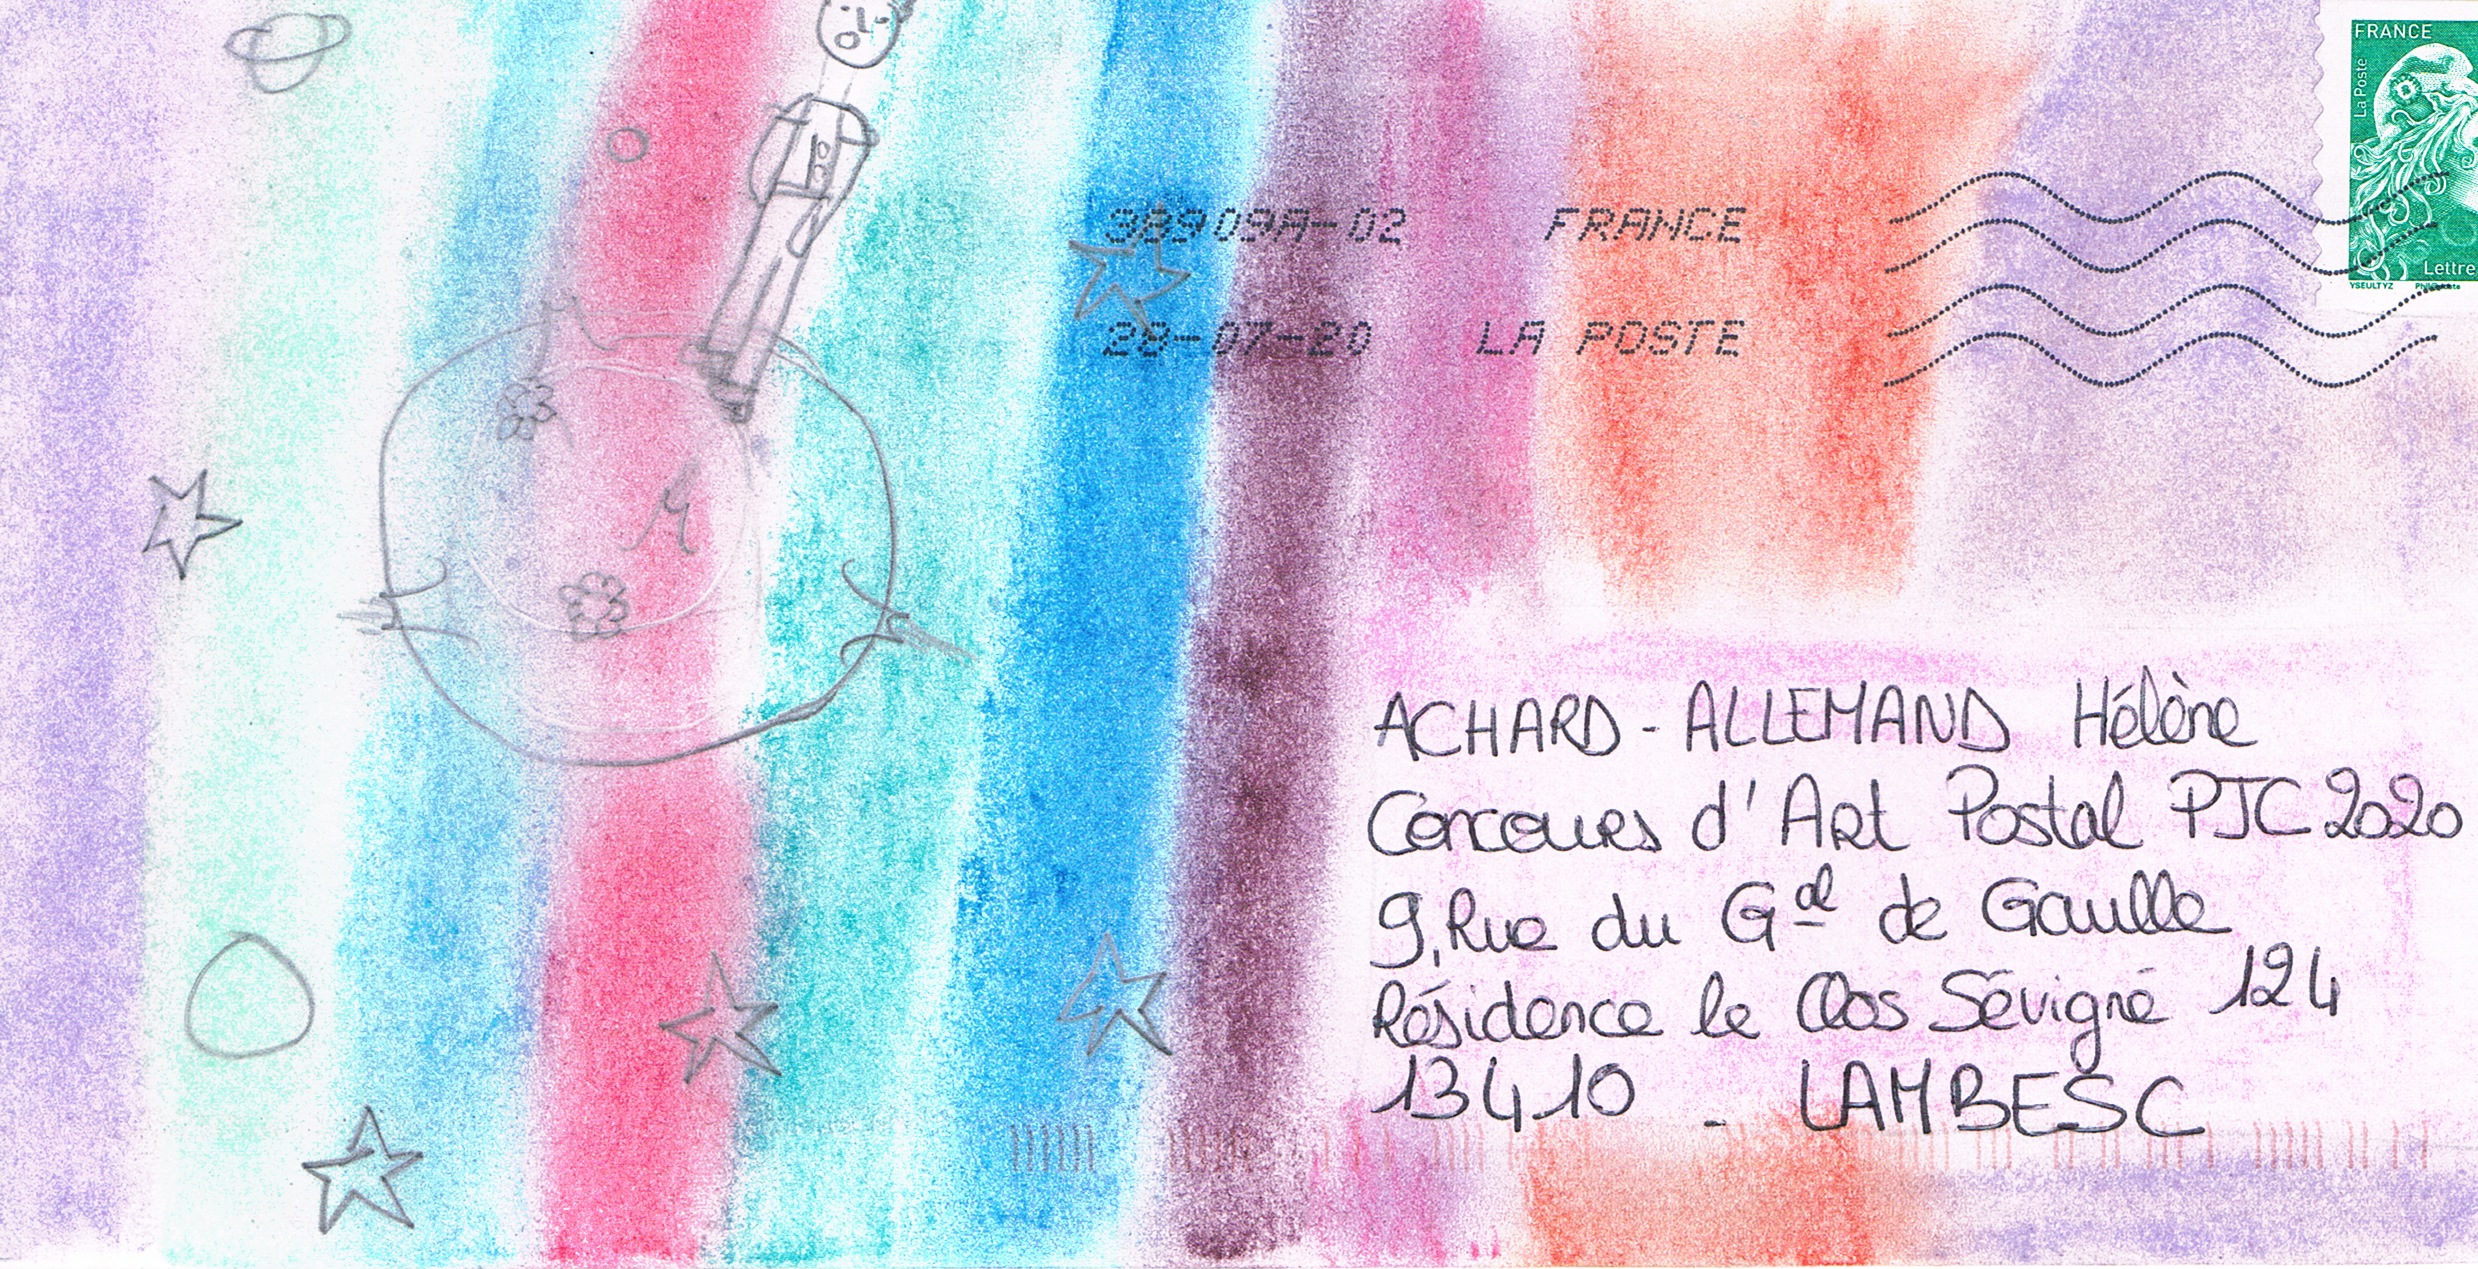 FRANCE
La Poste
Lettre
YSEULTYZ
38909A-02 FRANCE
28-07-20 LA POSTE
ACHARD - ALLEMAND Hélène
Concours d'Art Postal PJC 2020
9, Rue du Gal de Gaulle
Résidence le Clos Sévigné 124
13410 - LAMBESC